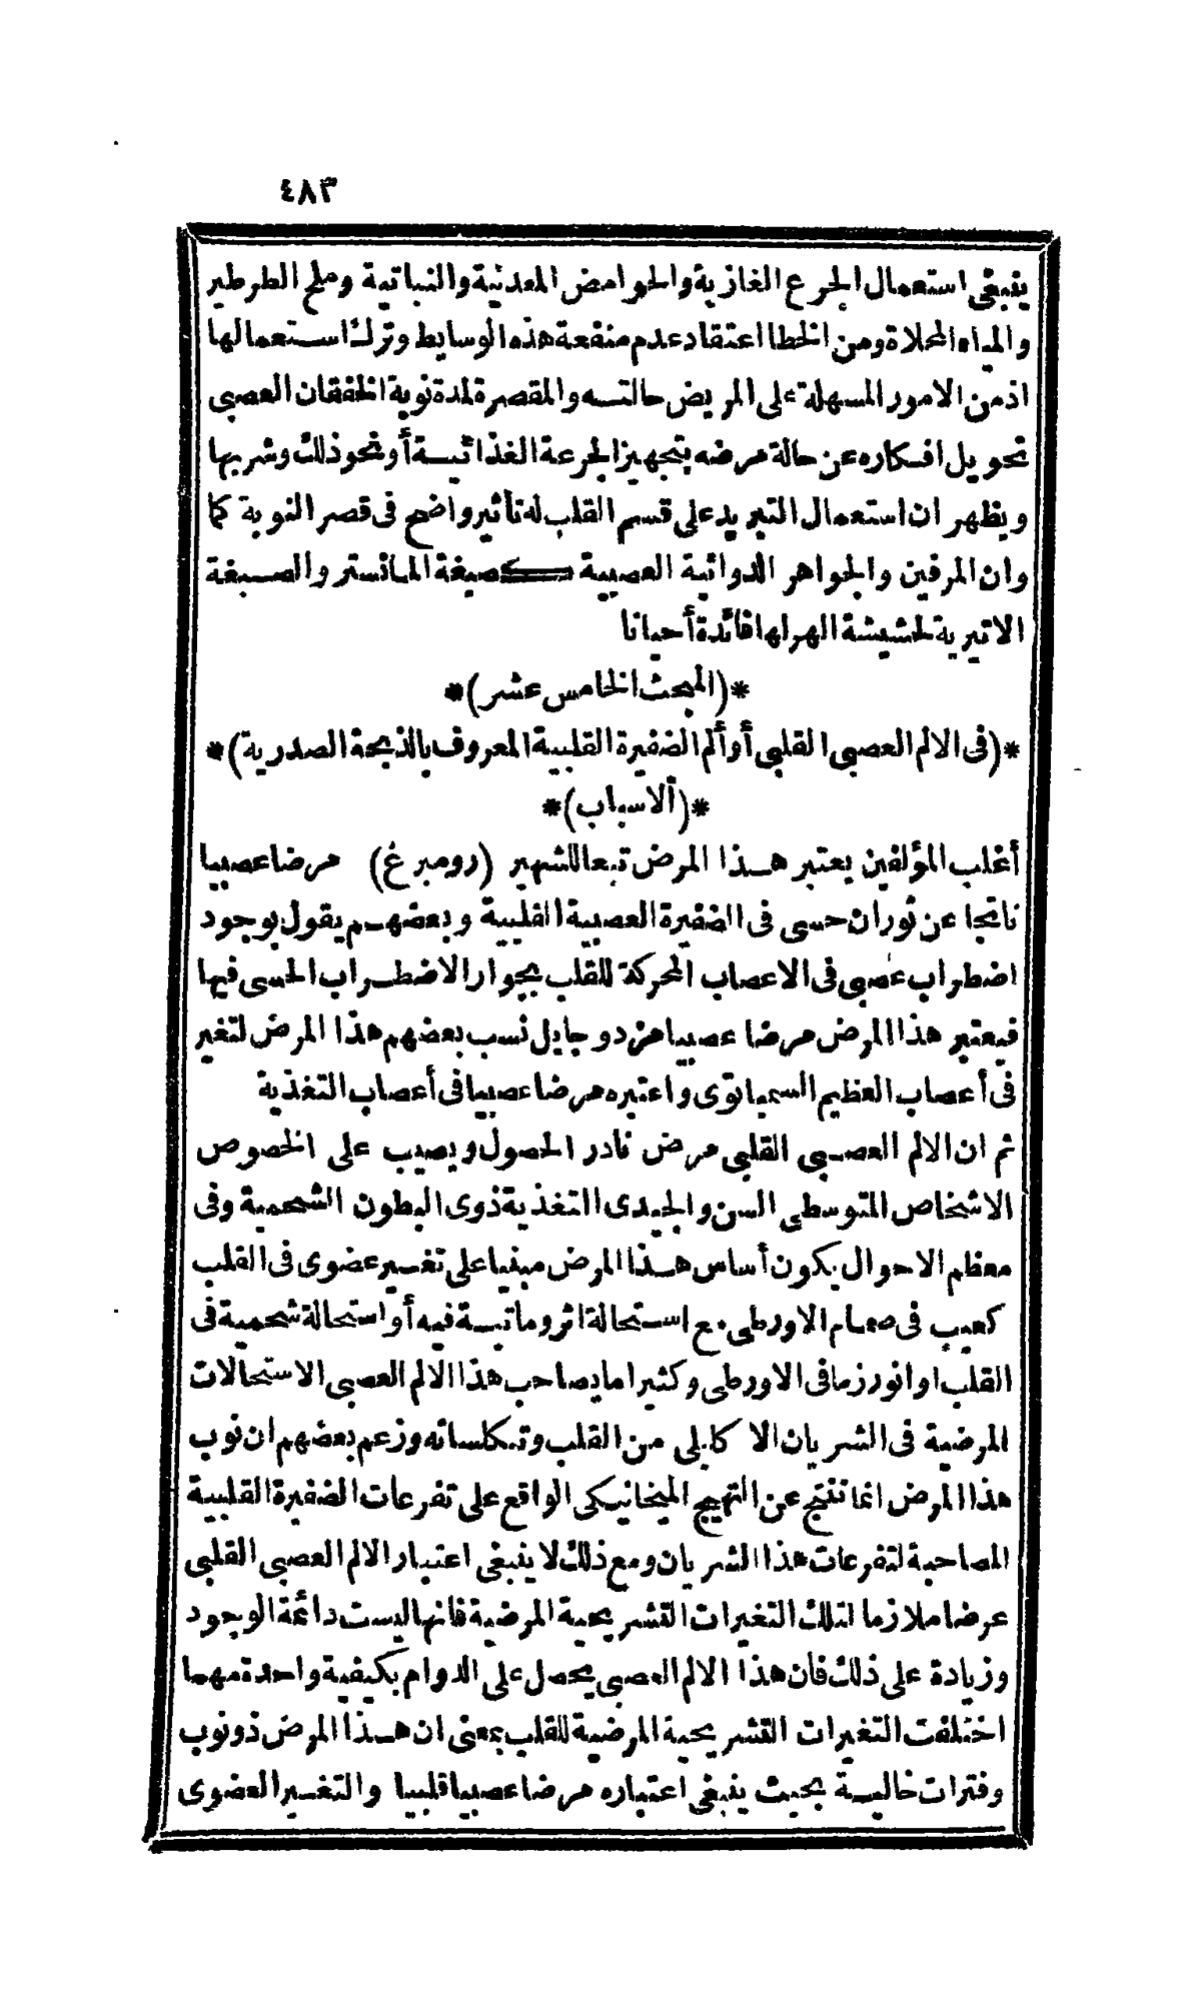 ٤٨٣
ينبغى استعمال الجرع الغازية والحوامض المعدنية والنباتية وملح الطرطير
والمياه المحلاة ومن الخطا اعتقاد عدم منفعة هذه الوسايط وترك استعمالها
اذ من الامور المسهلة على المريض حالتسه والمقصرة لمدة نوبة الخفقان العصبى
تحويل افكاره عن حالة مرضه بتجهيز الجرعة الغذائية أو نحو ذلك وشربها
ويظهر ان استعمال التبريد على قسم القلب له تأثير واضح فى قصر النوبة كما
وان المرفين والجواهر الدوائية العصبية كصبغة المانستر والصبغة
الاتيرية لحشيشة الهر لها فائدة أحيانا
*(المبحث الخامس عشر)*
*(فى الالم العصبى القلبى أو ألم الضفيرة القلبية المعروف بالذبحة الصدرية)*
*(الاسباب)*
أغلب المؤلفين يعتبر هذا المرض تبعا للشهير (رومبرغ) مرضا عصبيا
ناتجا عن ثوران حسى فى الضفيرة العصبية القلبية وبعضهم يقول بوجود
اضطراب عصبى فى الاعصاب المحركة للقلب بجوار الاضطراب الحسى فيها
فيعتبر هذا المرض مرضا عصبيا مزدوجا بل نسب بعضهم هذا المرض لتغير
فى أعصاب العظيم السمباتوى واعتبره مرضا عصبيا فى أعصاب التغذية
ثم ان الالم العصبى القلبى مرض نادر الحصول ويصيب على الخصوص
الاشخاص المتوسطى السن والجيدى التغذية ذوى البطون الشحمية وفى
معظم الاحوال يكون أساس هذا المرض مبنيا على تغير عضوى فى القلب
كعيب فى صمام الاورطى مع استحالة اثروماتيسة فيه أو استحالة شحمية فى
القلب او انورزما فى الاورطى وكثيرا ما يصاحب هذا الالم العصبى الاستحالات
المرضية فى الشريان الاكابلى من القلب وتكلساته وزعم بعضهم ان نوب
هذا المرض انما تنتج عن التهيج الميخانيكى الواقع على تفرعات الضفيرة القلبية
المصاحبة لتفرعات هذا الشريان ومع ذلك لا ينبغى اعتبار الالم العصبى القلبى
عرضا ملازما لتلك التغيرات التشريحية المرضية فانها ليست دائمة الوجود
وزيادة على ذلك فان هذا الالم العصبى يحصل على الدوام بكيفية واحدة مهما
اختلفت التغيرات التشريحية المرضية للقلب بمعنى ان هذا المرض ذو نوب
وفترات خالية بحيث ينبغى اعتباره مرضا عصبيا قلبيا والتغير العضوى